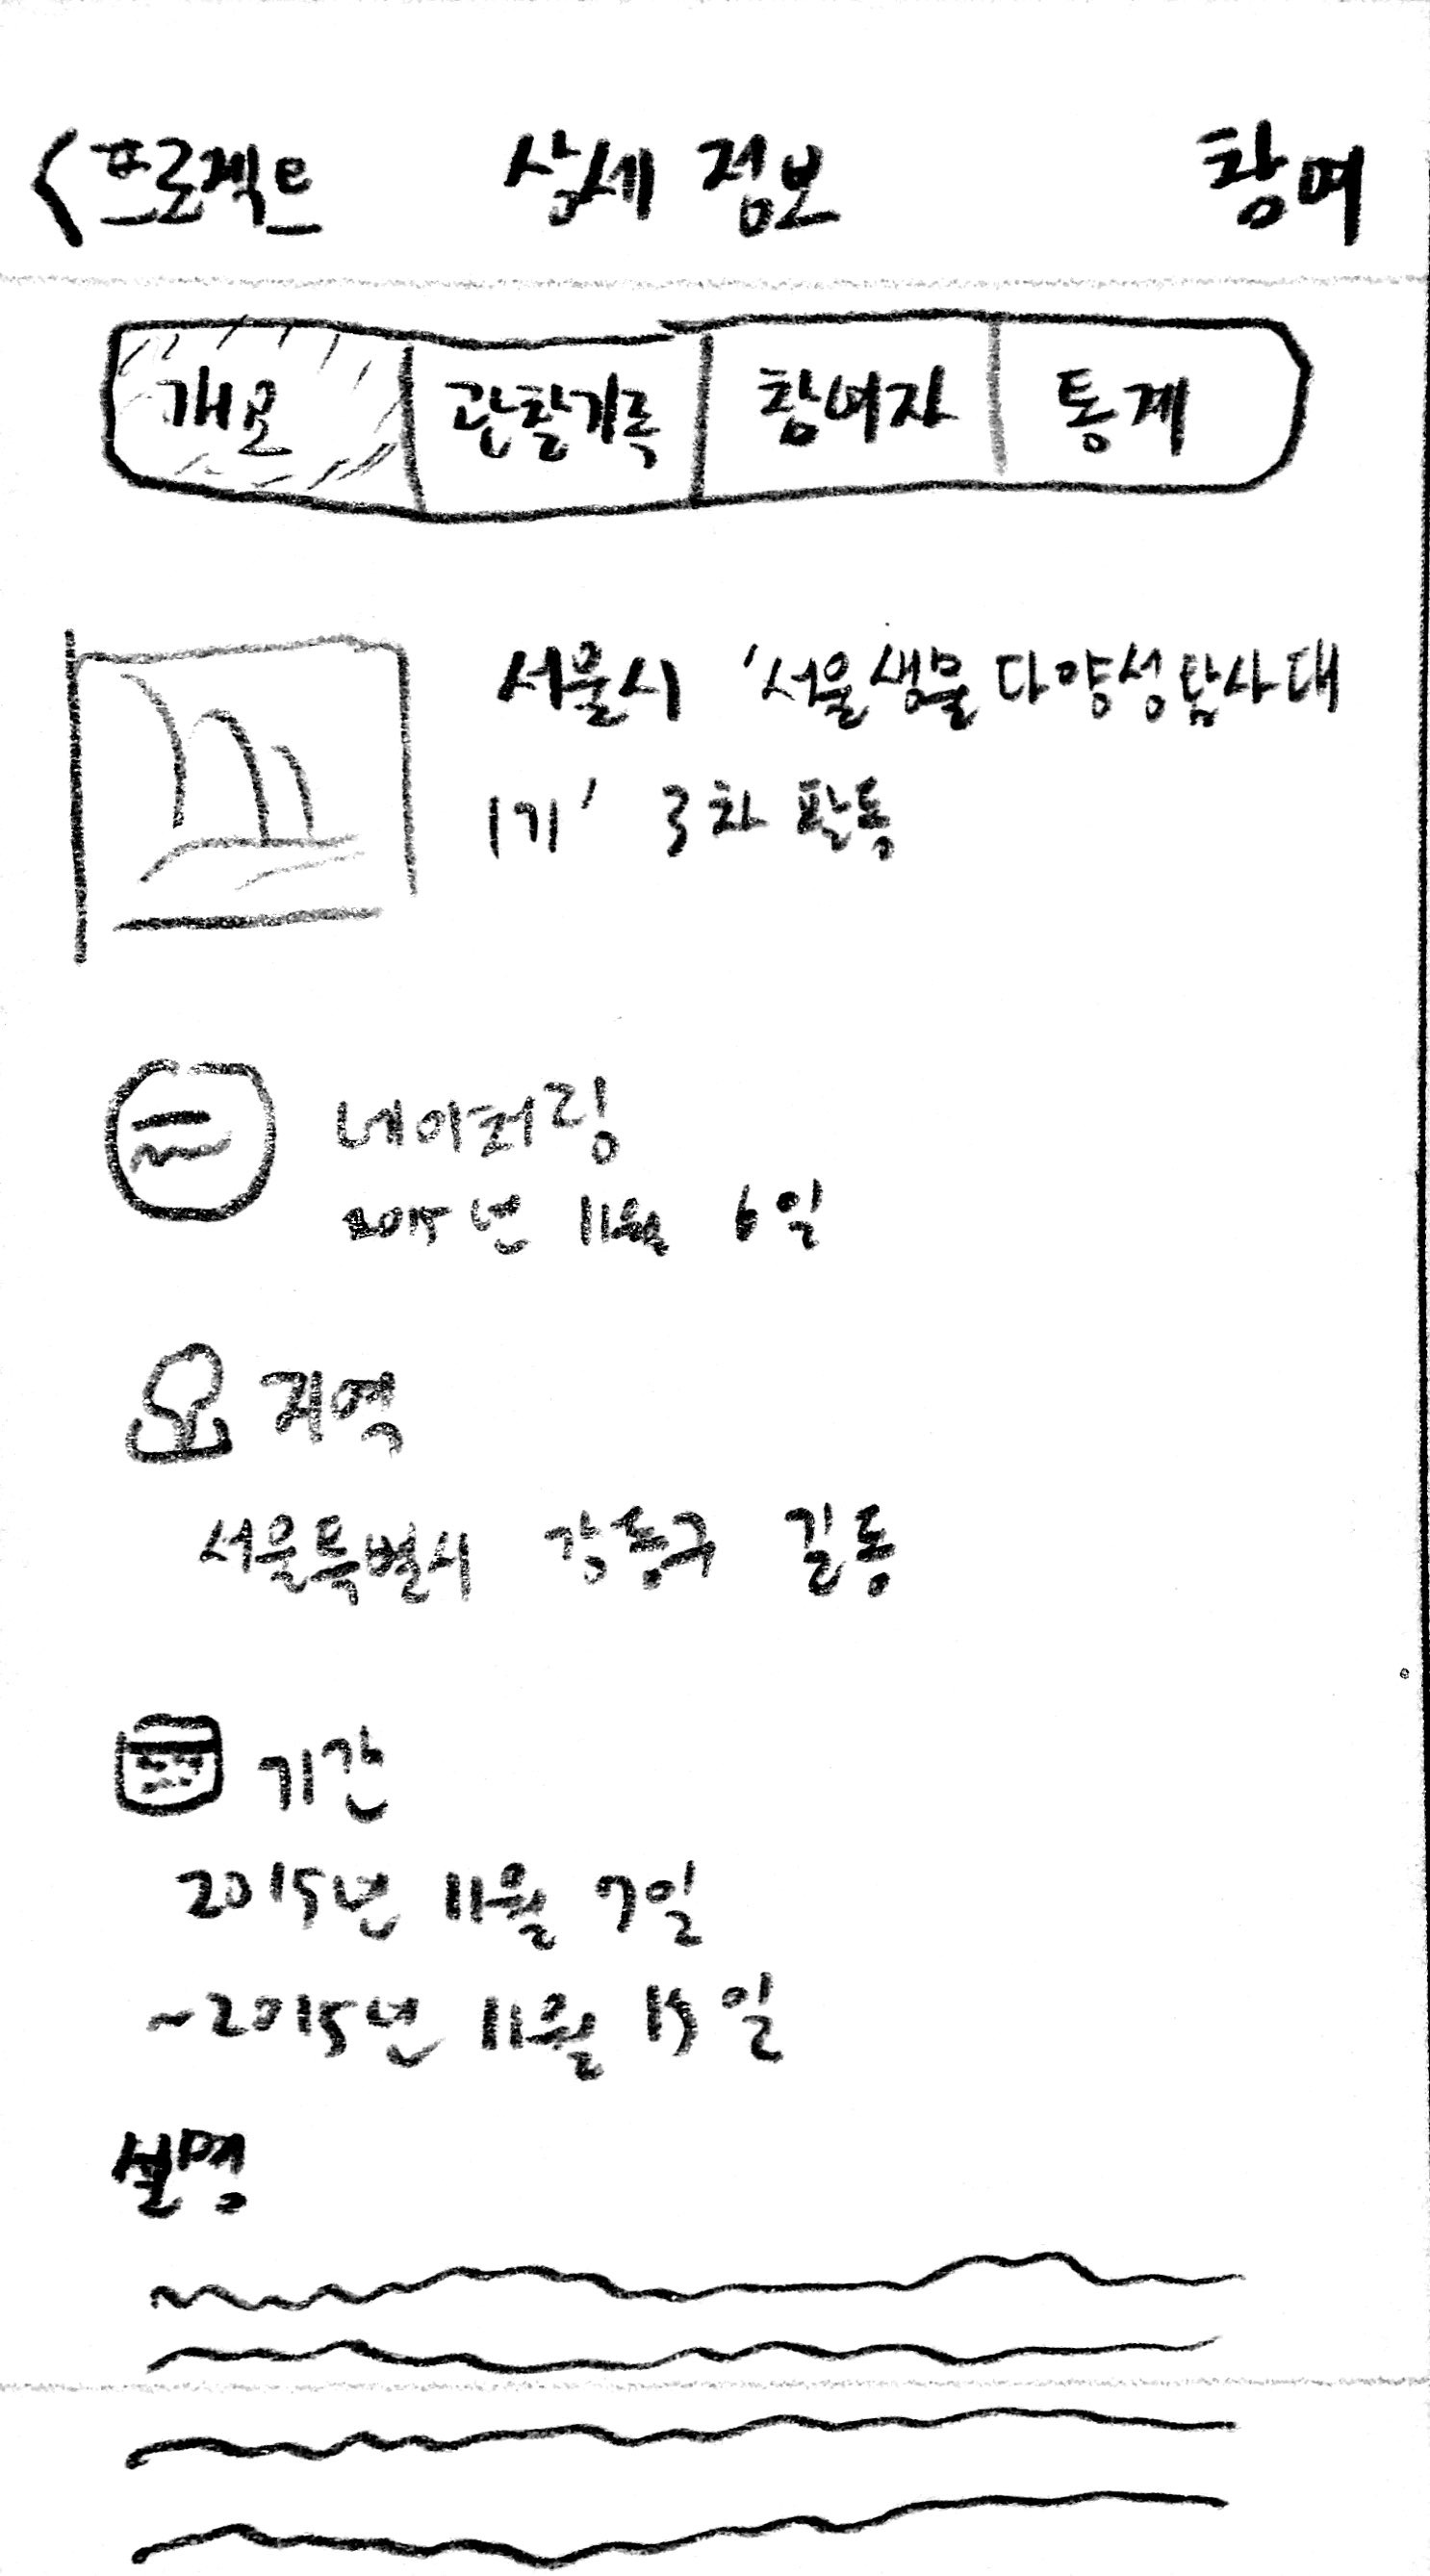 <프로젝트 상세 정보 참여
개요 관찰기록 참여자 통계
서울시 '서울생물다양성탐사대
1기' 3차 활동
네이처링
2015년 11월 6일
지역
서울특별시 강동구 길동
기간
2015년 11월 7일
~2015년 11월 15일
설명